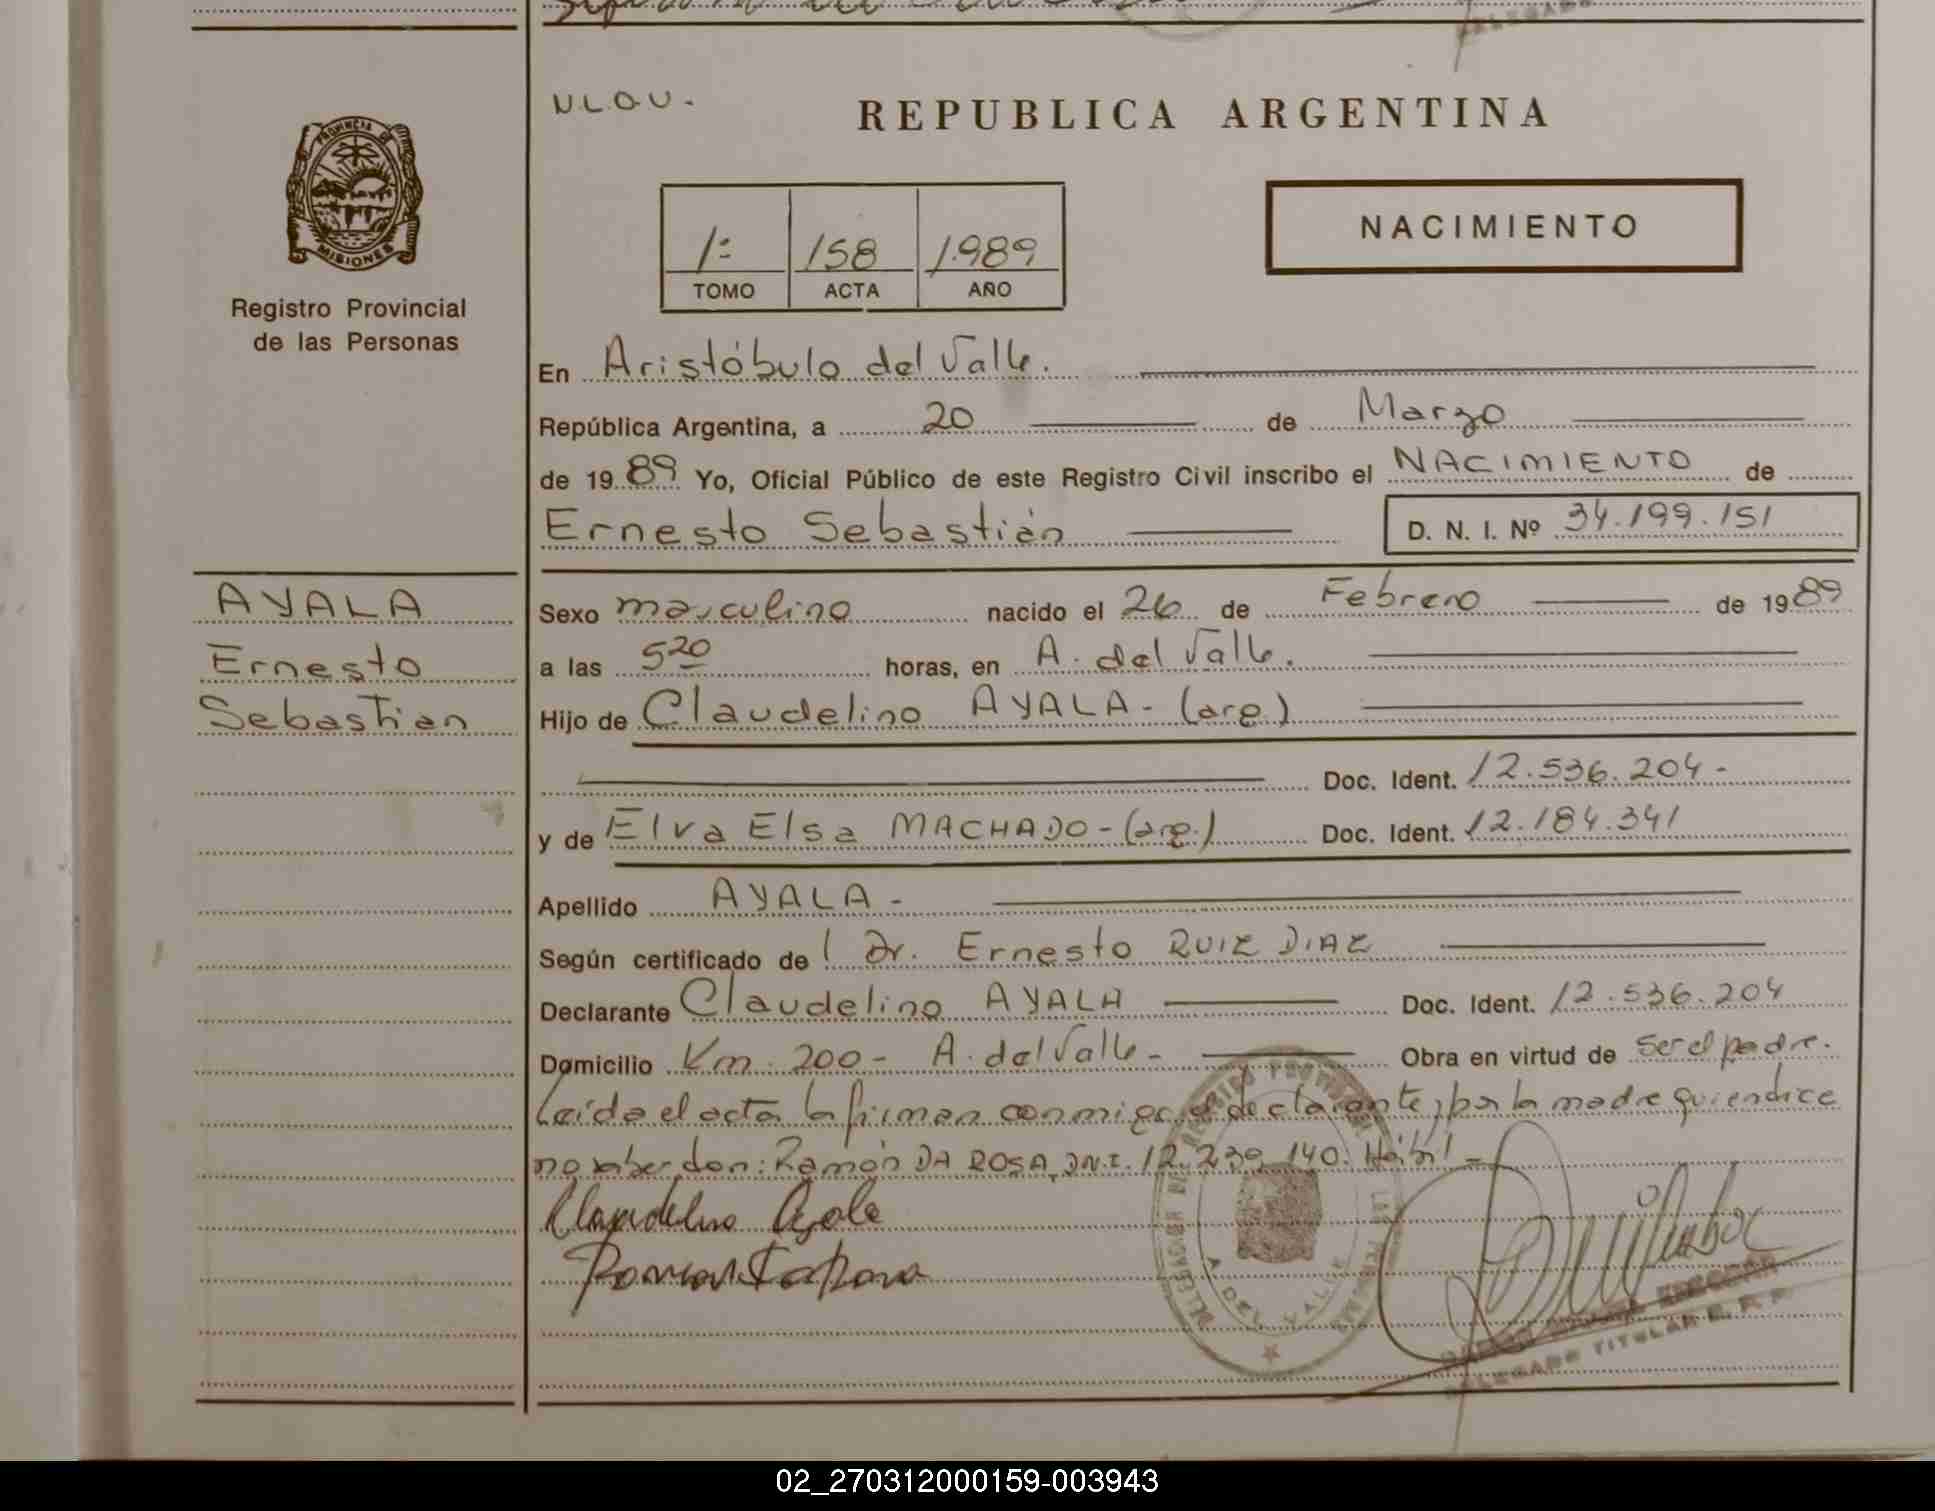 N.L.O.U.-
REPUBLICA ARGENTINA
PROVINCIA DE
MISIONES
Registro Provincial
de las Personas
1º 158 1.989
TOMO ACTA AÑO
NACIMIENTO
En Aristóbulo del Valle.
República Argentina, a 20 de Marzo
de 1989 Yo, Oficial Público de este Registro Civil inscribo el NACIMIENTO de
Ernesto Sebastián D. N. I. Nº 34.199.151
AYALA
Ernesto
Sebastian
Sexo masculino nacido el 26 de Febrero de 1989
a las 5 20 horas, en A. del Valle.
Hijo de Claudelino AYALA - (arg.)
Doc. Ident. 12.536.204-
y de Elva Elsa MACHADO - (arg.) Doc. Ident. 12.184.341
Apellido AYALA -
Según certificado del Dr. Ernesto RUIZ DIAZ
Declarante Claudelino AYALA Doc. Ident. 12.536.204
Domicilio Km. 200 - A. del Valle - Obra en virtud de ser el padre.
Leída el acta la firman conmigo el declarante, por la madre quien dice
no saber don: Ramón DA ROSA, D.N.I. 12.239.140. Hábil -
Claudelino Ayala
A. DEL VALLE
DELEGADO TITULAR R. P. P.
02_270312000159-003943